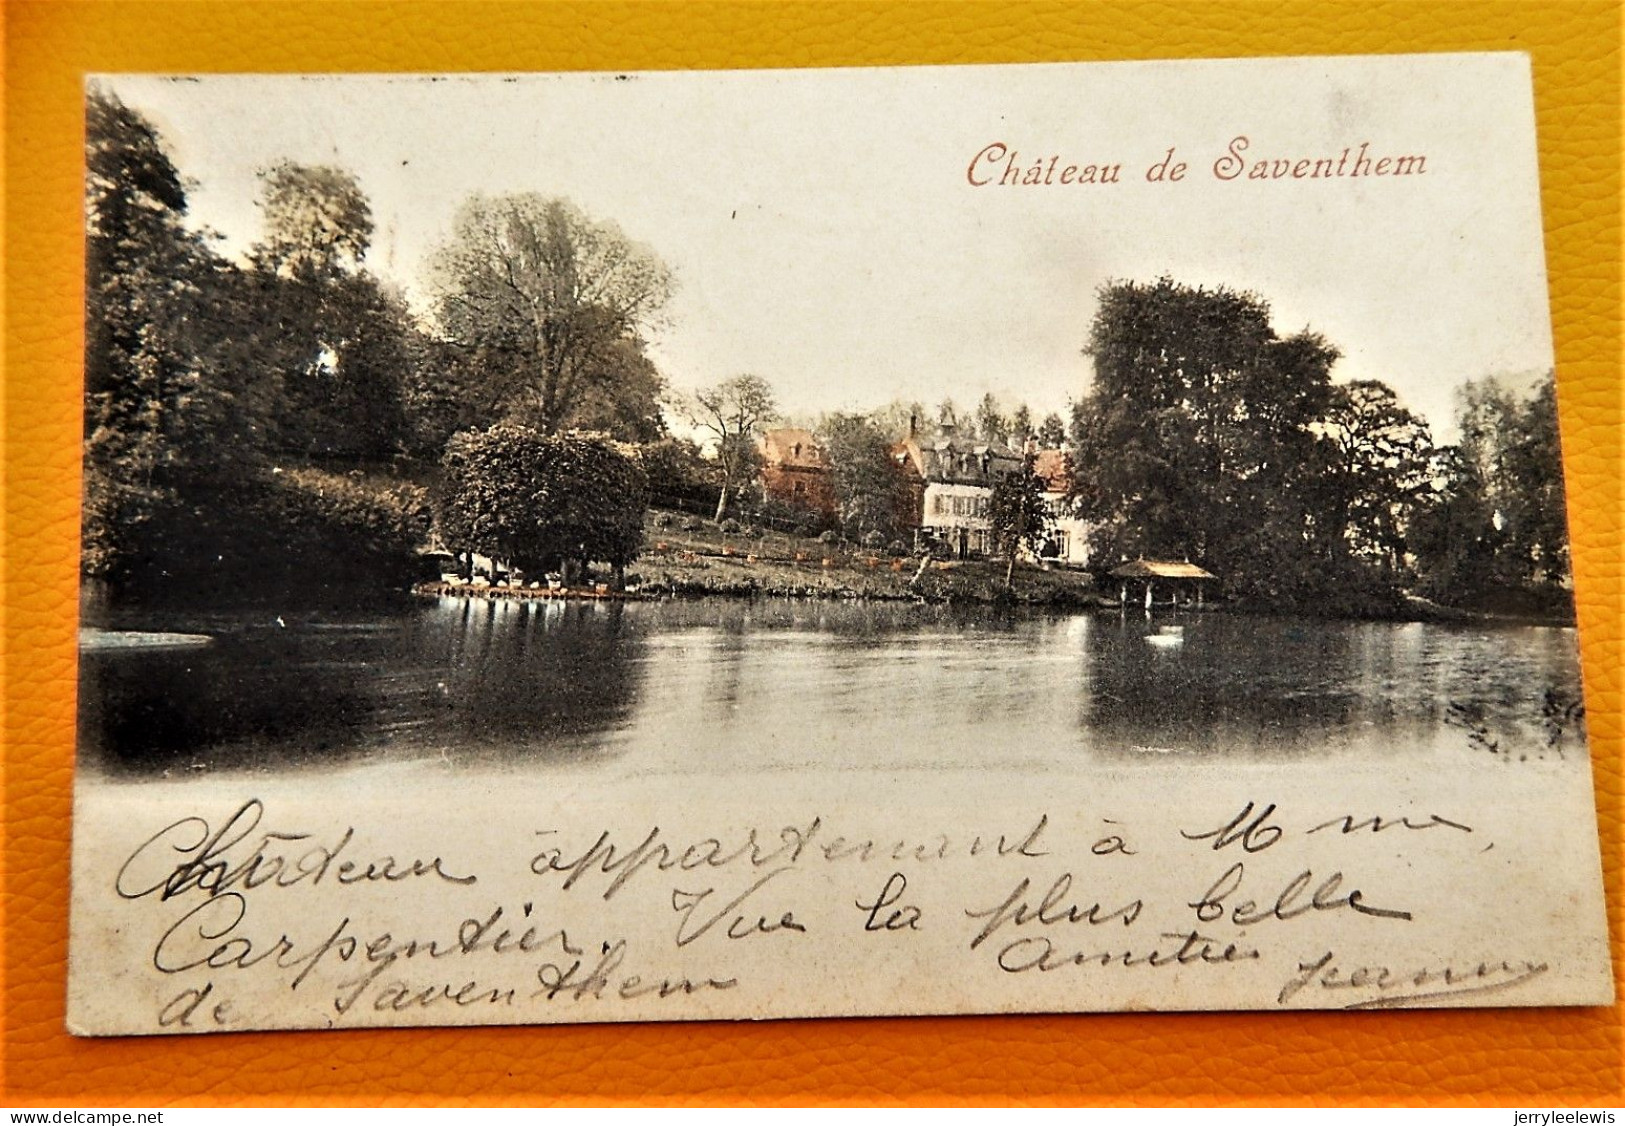 Château de Saventhem
Château appartenant à Mme
Carpentier. Vue la plus belle
de Saventhem Amitiés
www.delcampe.net
jerryleelewis